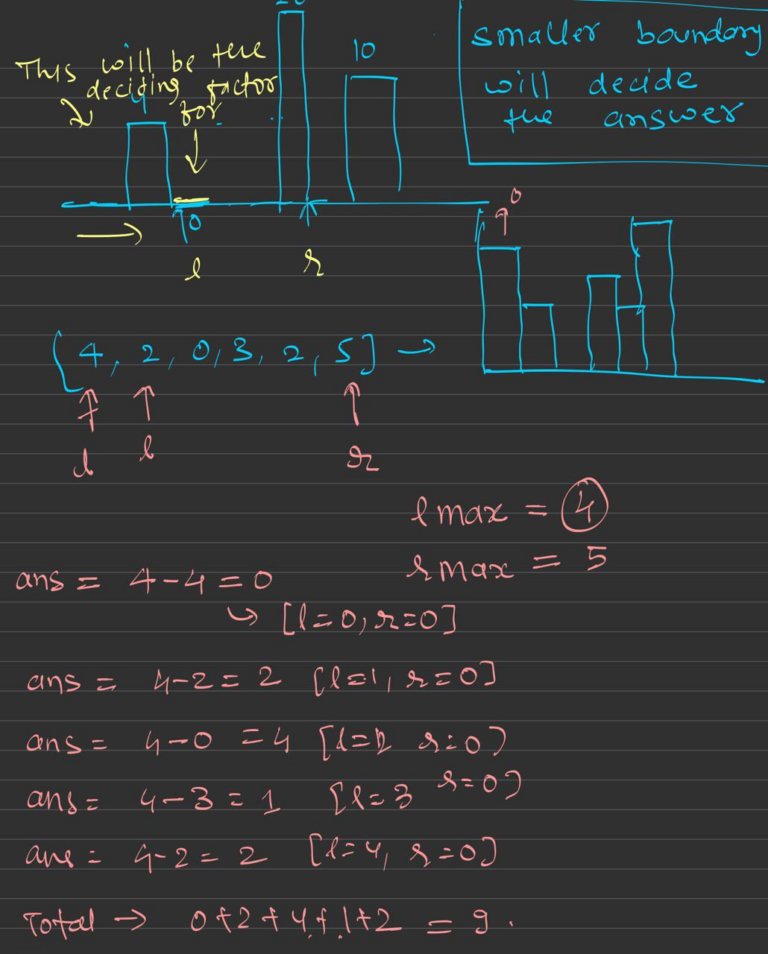 This will be the
deciding factor
for
10
smaller boundary
will decide
the answer
0
l
r
0
[4, 2, 0, 3, 2, 5] →
l
l
r
lmax = 4
rmax = 5
ans = 4-4=0
↳ [l=0, r=0]
ans = 4-2=2 [l=1, r=0]
ans = 4-0 =4 [l=2 r=0)
ans = 4-3=1 [l=3 r=0)
ans = 4-2=2 [l=4, r=0)
Total → 0+2+4+1+2 = 9.